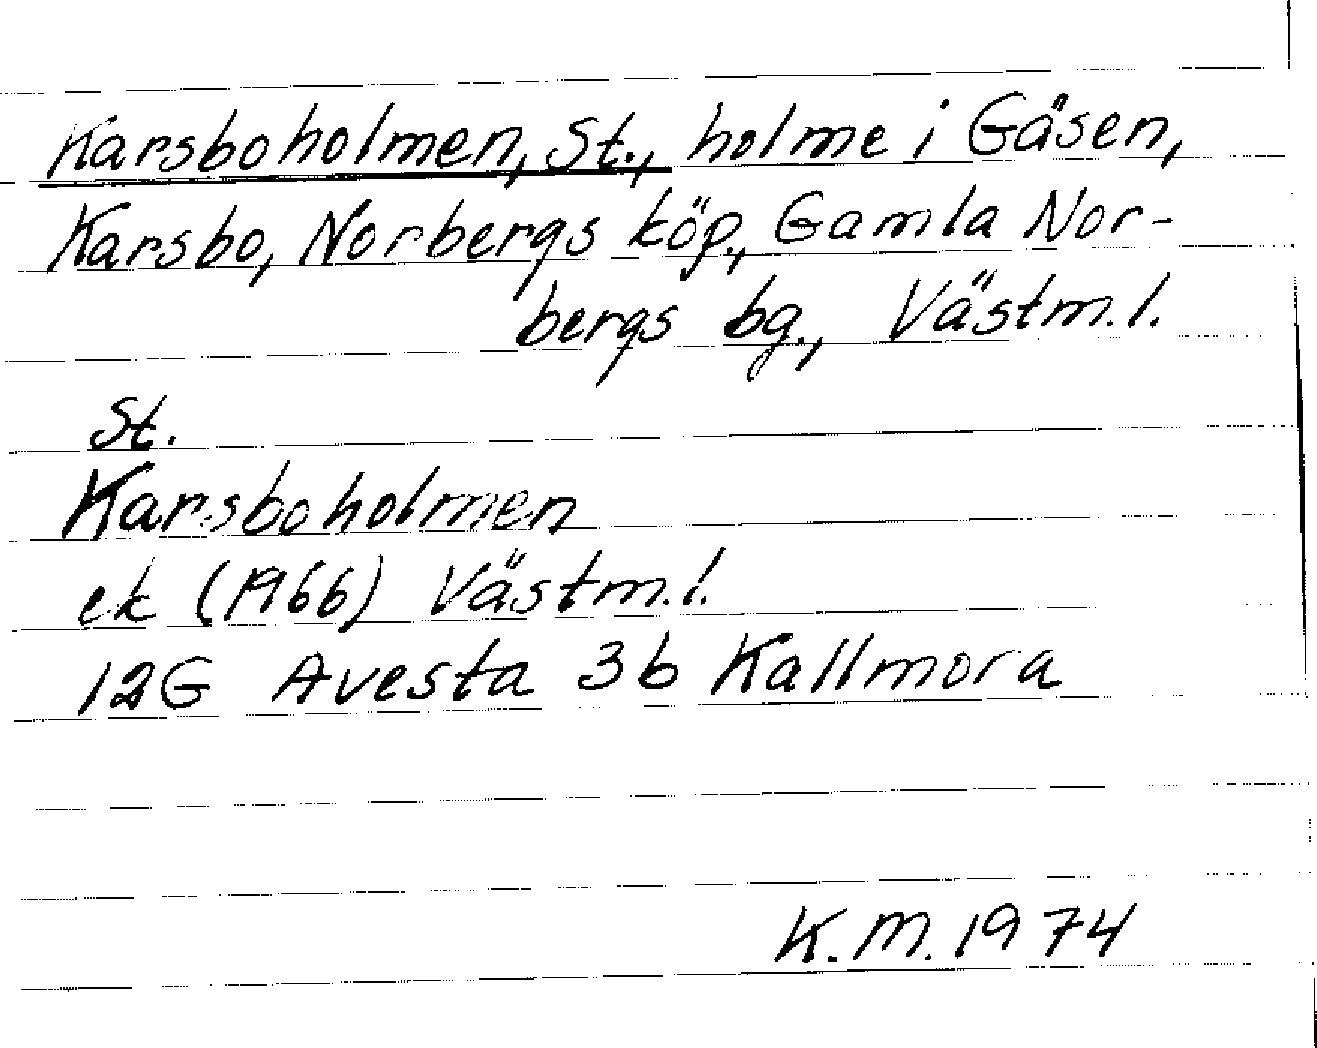 Karsboholmen, St., holme i Gäsen,
Karsbo, Norbergs köp., Gamla Nor-
bergs bg., Västm.l.
St.
Karsboholmen
ek (1966) Västm.l.
12G Avesta 3b Kallmora
K.M. 1974